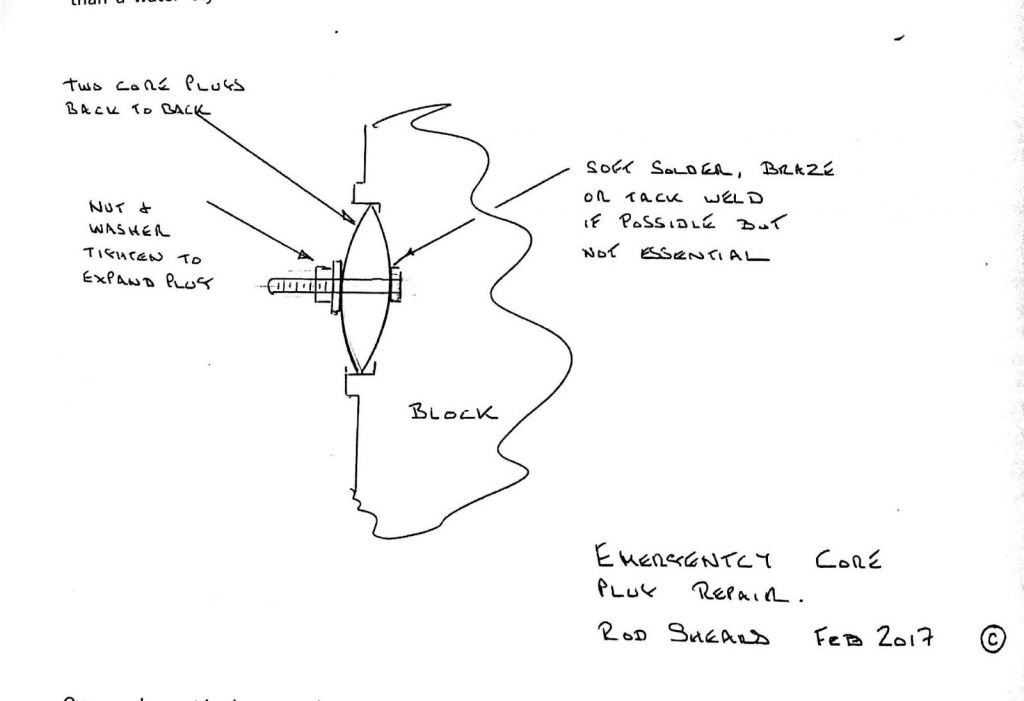 than a water
TWO CORE PLUGS
BACK TO BACK
NUT &
WASHER
TIGHTEN TO
EXPAND PLUG
SOFT SOLDER, BRAZE
OR TACK WELD
IF POSSIBLE BUT
NOT ESSENTIAL
BLOCK
EMERGENTCY CORE
PLUG REPAIR.
ROD SHEARD FEB 2017 ©